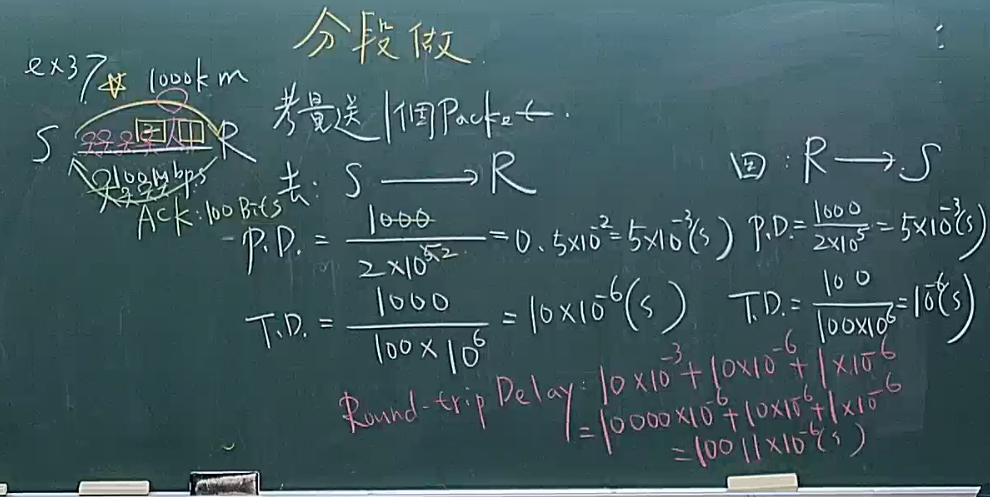 分段做
ex37 ☆ 1000km
S R
100Mbps
Ack:100Bits
考量送1個Packet.
去: S ⟶ R
P.D. = 1000 / 2×10^5 = 0.5×10^-2 = 5×10^-3(s)
T.D. = 1000 / 100×10^6 = 10×10^-6(s)
回: R ⟶ S
P.D. = 1000 / 2×10^5 = 5×10^-3(s)
T.D. = 100 / 100×10^6 = 10^-6(s)
Round-trip Delay: 10×10^-3+10×10^-6+1×10^-6
=10000×10^-6+10×10^-6+1×10^-6
=10011×10^-6(s)